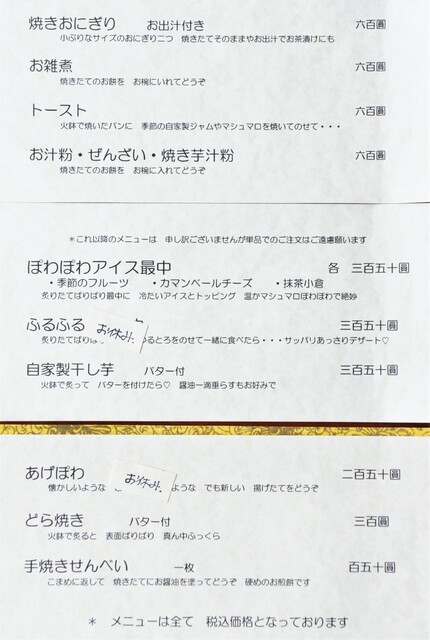 焼きおにぎり　お出汁付き　六百圓
小ぶりなサイズのおにぎり二つ　焼きたてそのままやお出汁でお茶漬けにも
お雑煮　六百圓
焼きたてのお餅を　お椀にいれてどうぞ
トースト　六百圓
火鉢で焼いたパンに　季節の自家製ジャムやマシュマロを焼いてのせて・・・
お汁粉・ぜんざい・焼き芋汁粉　六百圓
焼きたてのお餅を　お椀に入れてどうぞ
＊これ以降のメニューは　申し訳ございませんが単品でのご注文はご遠慮願います
ぽわぽわアイス最中　各　三百五十圓
・季節のフルーツ　・カマンベールチーズ　・抹茶小倉
炙りたてぱりぱり最中に　冷たいアイスとトッピング　温かマシュマロぽわぽわで絶妙
ふるふる　お休み.　三百五十圓
炙りたてぱり　るとろをのせて一緒に食べたら・・・サッパリあっさりデザート♡
自家製干し芋　バター付　三百五十圓
火鉢で炙って　バターを付けたら♡　醤油一滴垂らすもお好みで
あげぽわ　お休み.　二百五十圓
懐かしいような　ような　でも新しい　揚げたてをどうぞ
どら焼き　バター付　三百圓
火鉢で炙ると　表面ぱりぱり　真ん中ふっくら
手焼きせんべい　一枚　百五十圓
こまめに返して　焼きたてにお醤油を塗ってどうぞ　硬めのお煎餅です
＊　メニューは全て　税込価格となっております